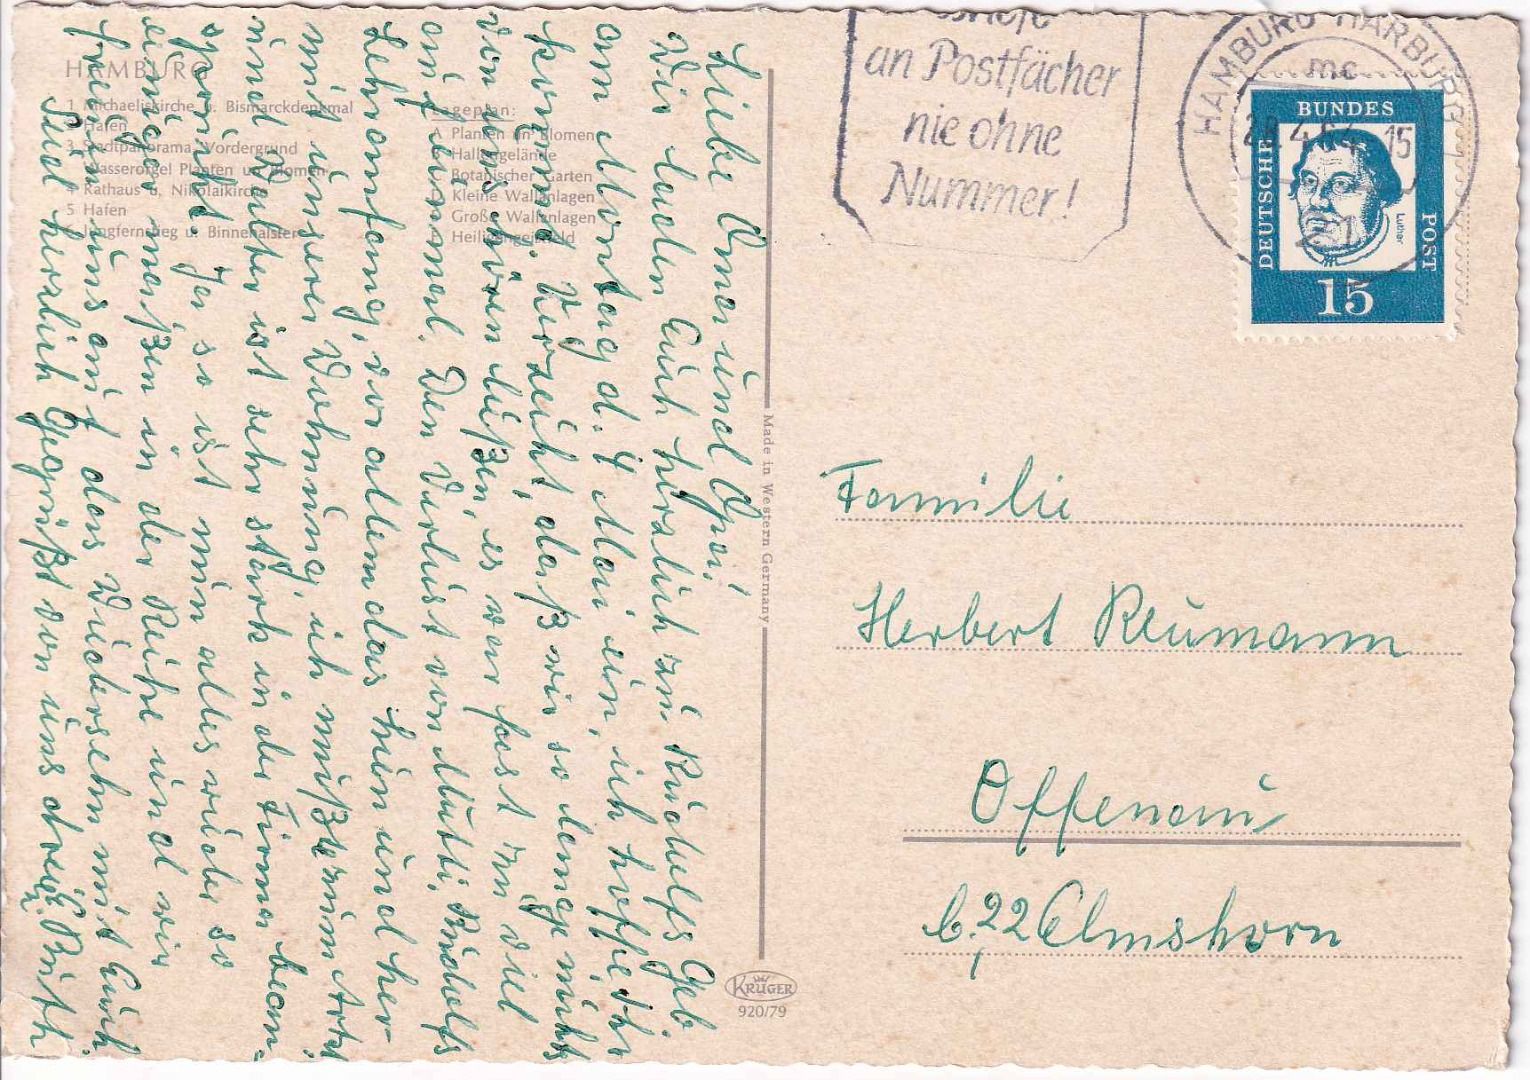 HAMBURG
1 Michaeliskirche u. Bismarckdenkmal
2 Hafen
3 Stadtpanorama, Vordergrund
Wasserorgel Planten un Blomen
4 Rathaus u. Nikolaikirche
5 Hafen
6 Jungfernstieg u. Binnenalster
Lageplan:
A Planten un Blomen
B Hallengelände
Botanischer Garten
Kleine Wallanlagen
Große Wallanlagen
Heiligengeistfeld
Liebe Oma und Opa!
Wir laden Euch herzlich zu Rudolfs Geb.
am Montag d. 4 Mai ein, ich hoffe Ihr
kommt. Verzeiht, daß wir so lange nichts
von uns hören ließen, es war fast zu viel
auf einmal. Den Verlust von Mutti, Rudolfs
Lehranfang, vor allem das hin und her
mit unserer Wohnung, ich mußte zum Arzt
und Walter ist sehr stark in der Firma bean-
sprucht. Ja so ist nun alles wieder so
einiger maßen in der Reihe und wir
freuen uns auf das Wiedersehn mit Euch.
Seid herzlich gegrüßt von uns drei Ruth
Made in Western Germany
KRÜGER
920/79
an Postfächer
nie ohne
Nummer!
HAMBURG HARBURG 1
mc
4.64 15
DEUTSCHE
BUNDES
POST
Luther
15
Familie
Herbert Reumann
Offenau
b. 22 Elmshorn